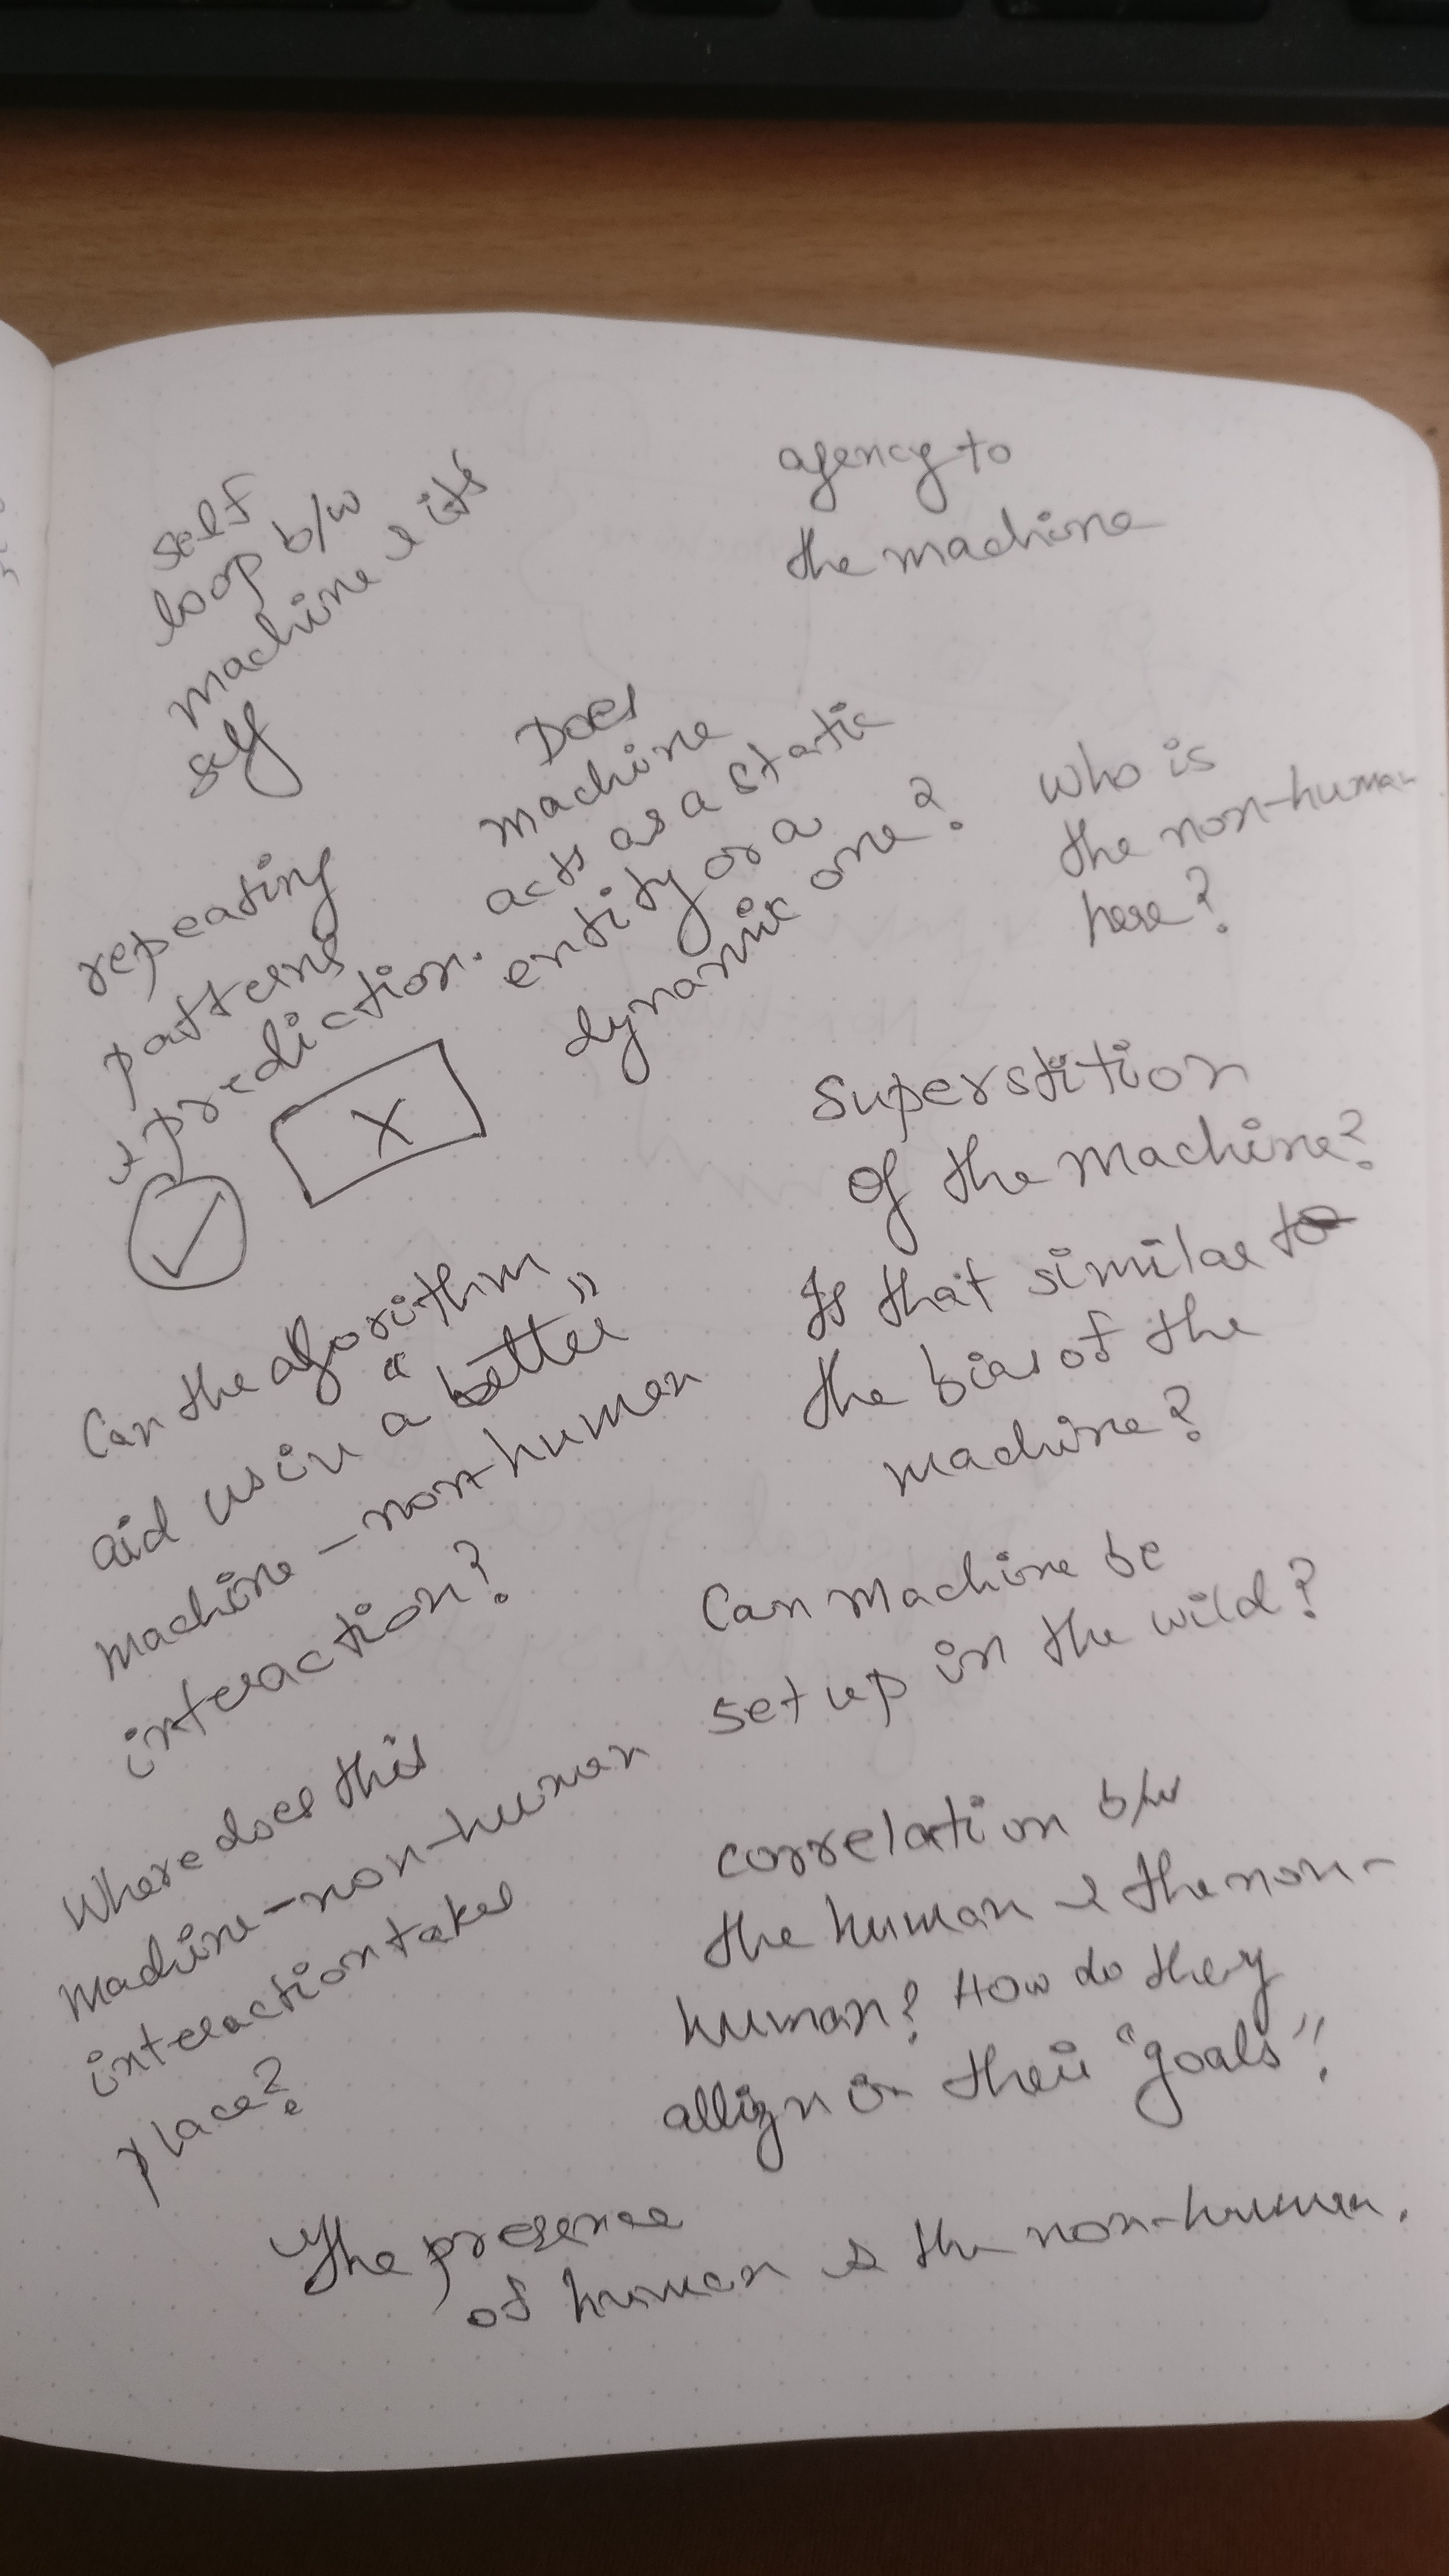 self
loop b/w
machine & its
self
agency to
the machine
Does
machine
acts as a startic
entity or a
dynamic one?
who is
the non-human
here?
repeating
patterns
& prediction.
X
Superstition
of the machine?
Is that similar to
the bias of the
machine?
Can the algorithm
aid us in a "better"
machine - non-human
interaction?
Can machine be
set up in the wild?
Where does this
machine - non-human
interaction takes
place?
correlation b/w
the human & the non-
human? How do they
allign in their "goals"?
The presence
of human & the non-human.